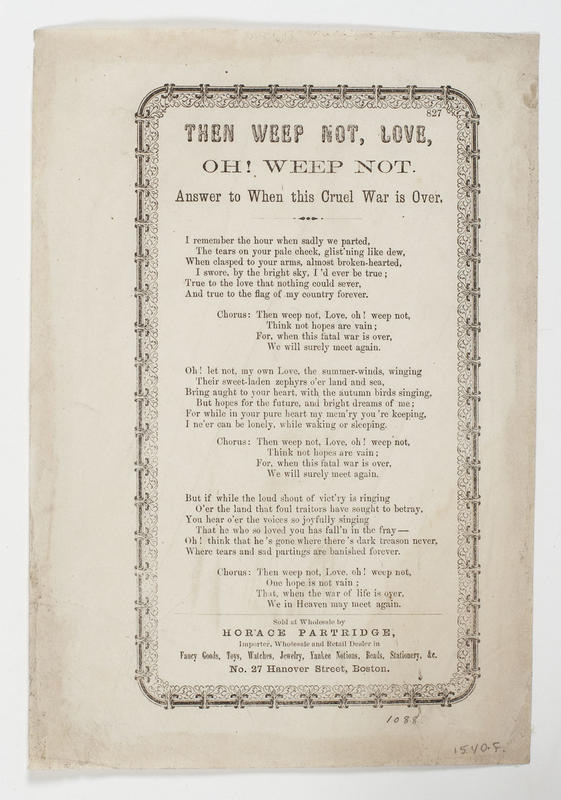 827
THEN WEEP NOT, LOVE,
OH! WEEP NOT.
Answer to When this Cruel War is Over.
I remember the hour when sadly we parted,
The tears on your pale cheek, glist'ning like dew,
When clasped to your arms, almost broken-hearted,
I swore, by the bright sky, I 'd ever be true;
True to the love that nothing could sever,
And true to the flag of my country forever.
Chorus: Then weep not, Love, oh! weep not,
Think not hopes are vain;
For, when this fatal war is over,
We will surely meet again.
Oh! let not, my own Love, the summer-winds, winging
Their sweet-laden zephyrs o'er land and sea,
Bring aught to your heart, with the autumn birds singing,
But hopes for the future, and bright dreams of me;
For while in your pure heart my mem'ry you 're keeping,
I ne'er can be lonely, while waking or sleeping.
Chorus: Then weep not, Love, oh! weep not,
Think not hopes are vain;
For, when this fatal war is over,
We will surely meet again.
But if while the loud shout of vict'ry is ringing
O'er the land that foul traitors have sought to betray,
You hear o'er the voices so joyfully singing
That he who so loved you has fall'n in the fray—
Oh! think that he 's gone where there 's dark treason never,
Where tears and sad partings are banished forever.
Chorus: Then weep not, Love, oh! weep not,
One hope is not vain;
That, when the war of life is over,
We in Heaven may meet again.
Sold at Wholesale by
HORACE PARTRIDGE,
Importer, Wholesale and Retail Dealer in
Fancy Goods, Toys, Watches, Jewelry, Yankee Notions, Beads, Stationery, &c.
No. 27 Hanover Street, Boston.
1088